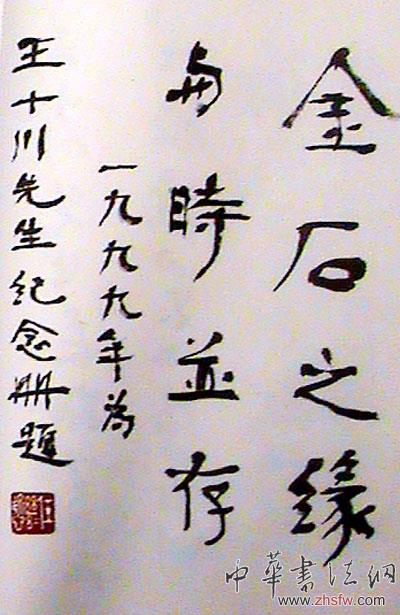 金石之缘
与時並存
一九九九年為
王十川先生纪念册題
中華書法網
www.zhsfw.com